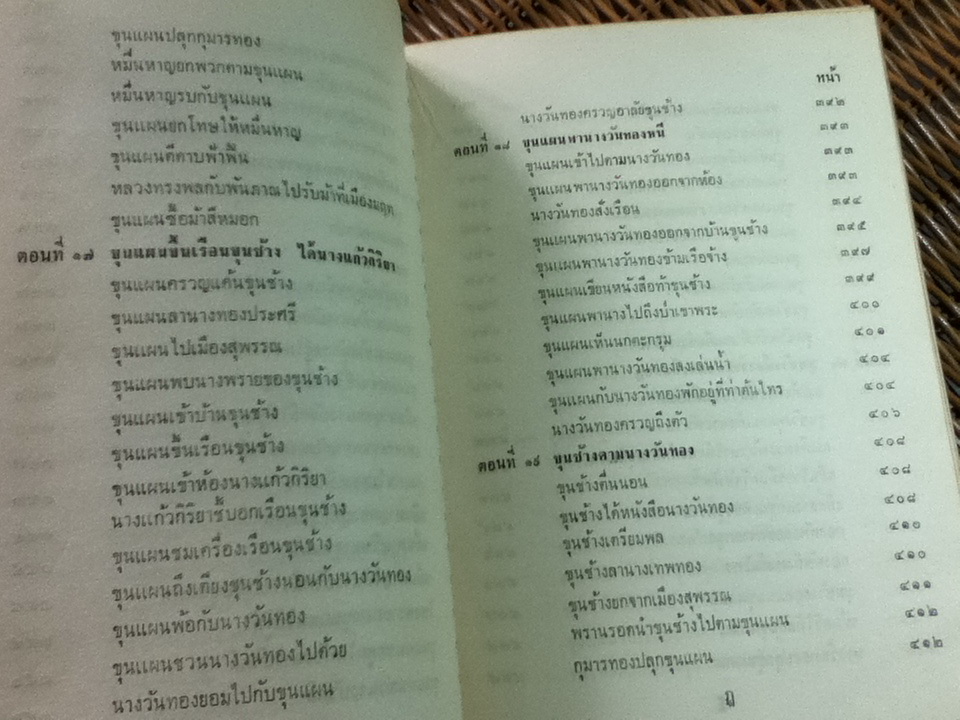 ขุนแผนปลุกกุมารทอง
หมื่นหาญยกพวกตามขุนแผน
หมื่นหาญรบกับขุนแผน
ขุนแผนยกโทษให้หมื่นหาญ
ขุนแผนตีดาบฟ้าฟื้น
หลวงทรงพลกับพันภาณไปรับม้าที่เมืองมฤท
ขุนแผนซื้อม้าสีหมอก
ตอนที่ ๑๗ ขุนแผนขึ้นเรือนขุนช้าง ได้นางแก้วกิริยา
ขุนแผนครวญแค้นขุนช้าง
ขุนแผนลานางทองประศรี
ขุนแผนไปเมืองสุพรรณ
ขุนแผนพบนางพรายของขุนช้าง
ขุนแผนเข้าบ้านขุนช้าง
ขุนแผนขึ้นเรือนขุนช้าง
ขุนแผนเข้าห้องนางแก้วกิริยา
นางแก้วกิริยาชี้บอกเรือนขุนช้าง
ขุนแผนชมเครื่องเรือนขุนช้าง
ขุนแผนถึงเตียงขุนช้างนอนกับนางวันทอง
ขุนแผนพ้อกับนางวันทอง
ขุนแผนชวนนางวันทองไปด้วย
นางวันทองยอมไปกับขุนแผน
หน้า
นางวันทองครวญอาลัยขุนช้าง ๓๙๒
ตอนที่ ๑๘ ขุนแผนพานางวันทองหนี ๓๙๓
ขุนแผนเข้าไปตามนางวันทอง ๓๙๓
ขุนแผนพานางวันทองออกจากห้อง ๓๙๓
นางวันทองสั่งเรือน ๓๙๔
ขุนแผนพานางวันทองออกจากบ้านขุนช้าง ๓๙๕
ขุนแผนพานางวันทองข้ามเรือจ้าง ๓๙๗
ขุนแผนเขียนหนังสือท้าขุนช้าง ๓๙๙
ขุนแผนพานางไปถึงป่าเขาพระ ๔๐๐
ขุนแผนเห็นนกตะกรุม ๔๐๑
ขุนแผนพานางวันทองลงเล่นน้ำ ๔๐๔
ขุนแผนกับนางวันทองพักอยู่ที่ท่าต้นไทร ๔๐๔
นางวันทองครวญถึงตัว ๔๐๖
ตอนที่ ๑๙ ขุนช้างตามนางวันทอง ๔๐๘
ขุนช้างตื่นนอน ๔๐๘
ขุนช้างได้หนังสือนางวันทอง ๔๐๘
ขุนช้างเตรียมพล ๔๑๐
ขุนช้างลานางเทพทอง ๔๑๐
ขุนช้างยกจากเมืองสุพรรณ ๔๑๑
พรานรอดนำขุนช้างไปตามขุนแผน ๔๑๒
กุมารทองปลุกขุนแผน ๔๑๒